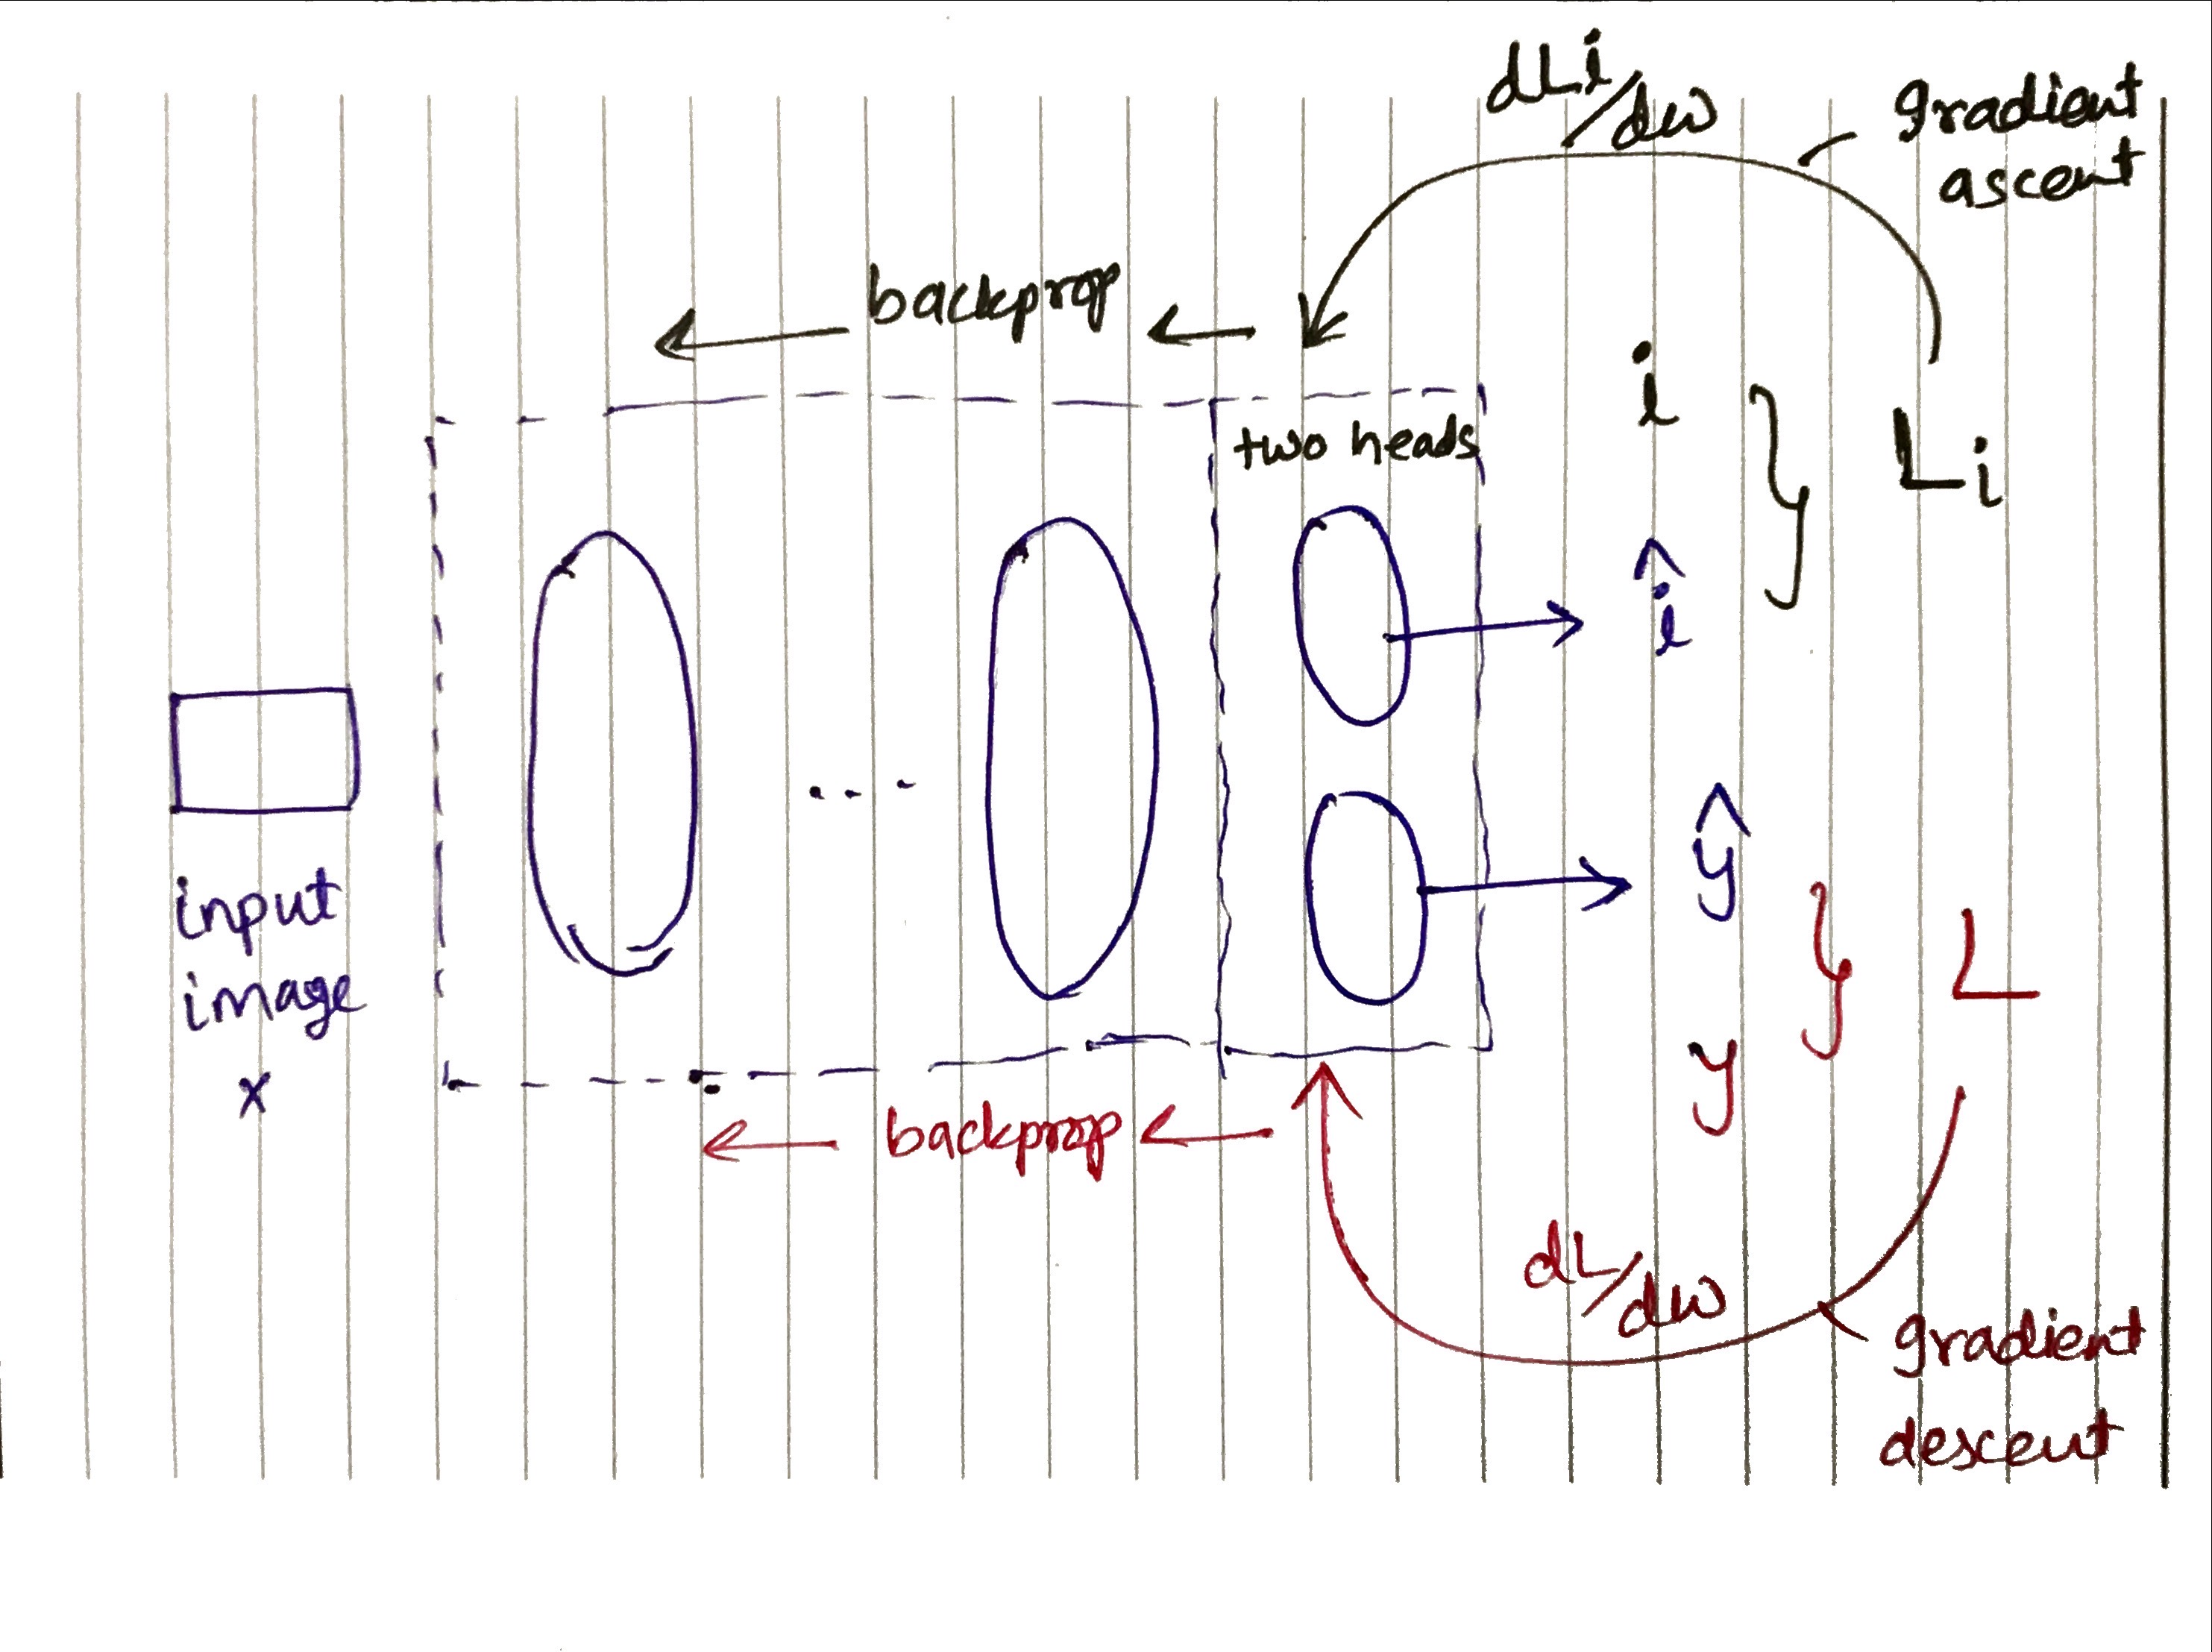 dLi/dw
gradient
ascent
backprop
i
two heads
Li
î
ŷ
input
image
x
L
y
backprop
dL/dw
gradient
descent